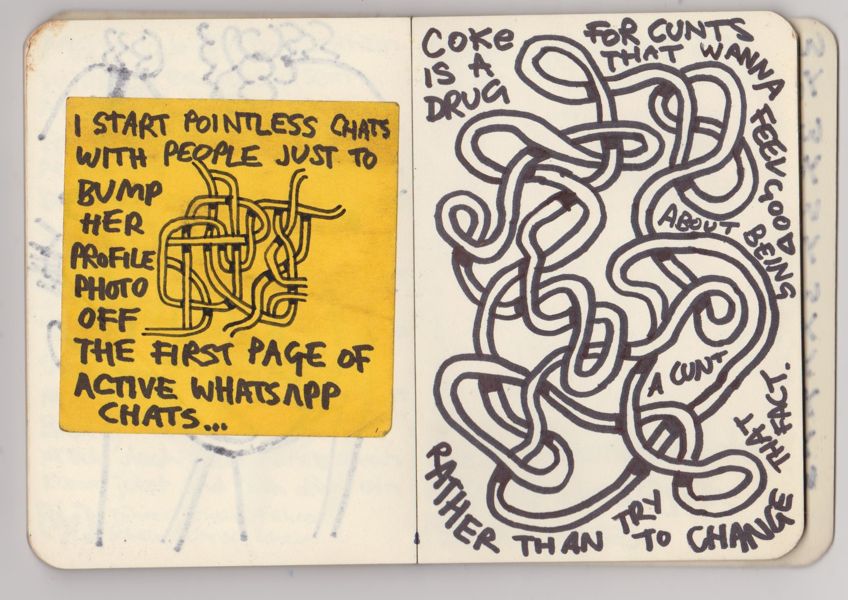 I START POINTLESS CHATS
WITH PEOPLE JUST TO
BUMP
HER
PROFILE
PHOTO
OFF
THE FIRST PAGE OF
ACTIVE WHATSAPP
CHATS...
COKE
IS A
DRUG
FOR CUNTS
THAT WANNA
FEEL GOOD
ABOUT BEING
A CUNT
RATHER THAN TRY
TO CHANGE
THAT FACT.